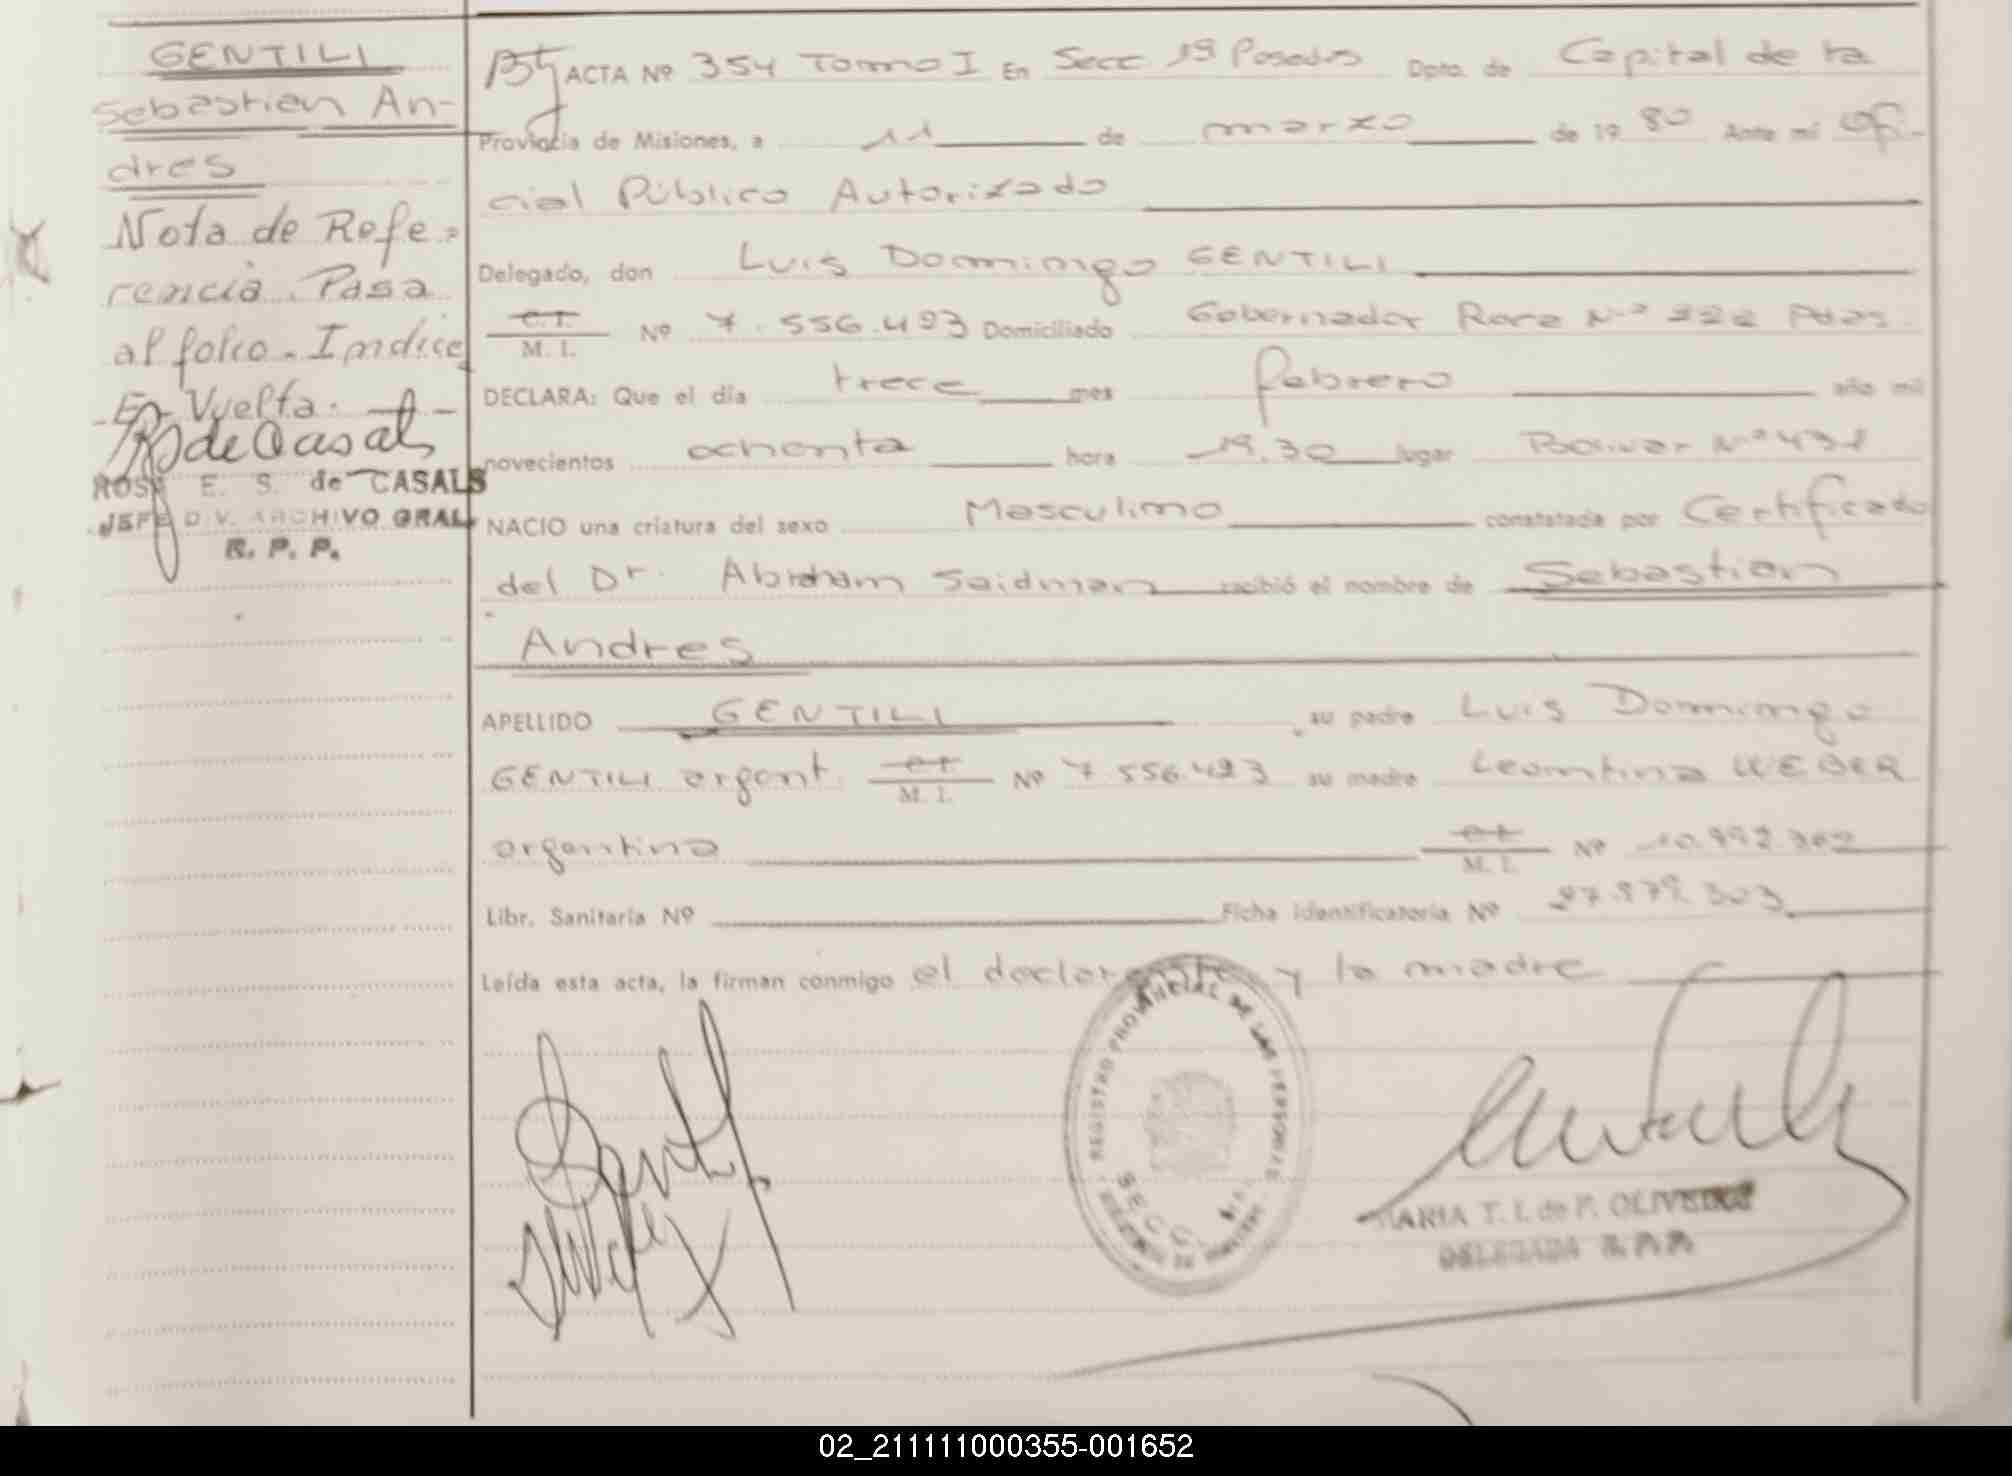 GENTILI
Sebastian An-
dres
Nota de Refe-
rencia. Pasa
al folio. Indice
Vuelta.
de Casals
ROSA E. S. de CASALS
JEFE DIV. ARCHIVO GRAL.
R. P. P.
ACTA Nº 354 Tomo I En Secc 1ª Posadas Dpto. de Capital de la
Provincia de Misiones, a 11 de marzo de 19 80 Ante mi Ofi-
cial Público Autorizado
Delegado, don Luis Domingo GENTILI
C.I. M. I. Nº 7.556.493 Domiciliado Gobernador Roca Nº Pdas.
DECLARA: Que el día trece mes febrero año mil
novecientos ochenta hora 19.30 lugar Bolivar Nº
NACIO una criatura del sexo Masculino constatada por Certificado
del Dr. Abraham Seidman recibió el nombre de Sebastian
Andres
APELLIDO GENTILI su padre Luis Domingo
GENTILI argent. M. I. Nº 7 556.493 su madre Leontina WEBER
argentina M. I. Nº
Libr. Sanitaria Nº Ficha identificatoria Nº 27.979.303
Leída esta acta, la firman conmigo el declarante y la madre
REGISTRO PROVINCIAL DE LAS PERSONAS
SECC.
MARIA T. I. de F. OLIVEIRA
DELEGADA R.P.P.
02_211111000355-001652